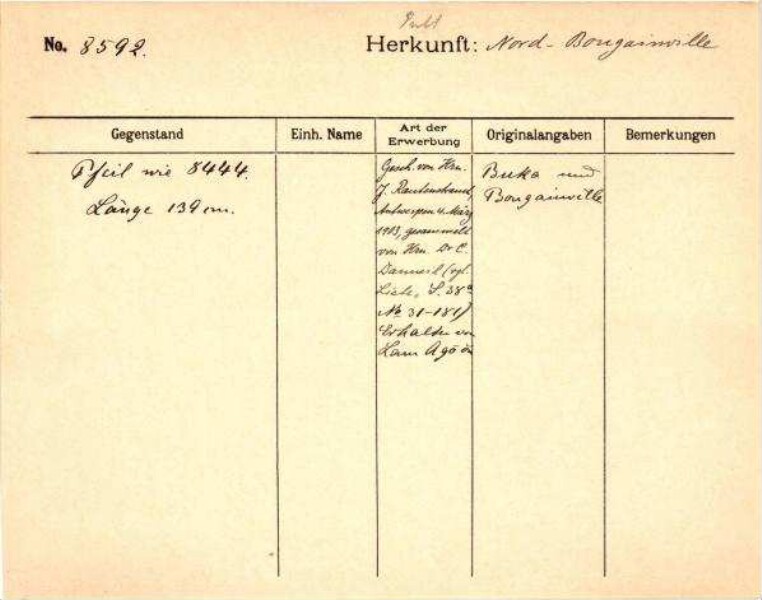 No. 8592.
Herkunft: Nord-Bougainville
Gegenstand
Einh. Name
Art der Erwerbung
Originalangaben
Bemerkungen
Pfeil wie 8444.
Länge 139 cm.
Gesch. von Hrn.
J. Rautenstrauch,
Antwerpen 4. März
1903, gesammelt
von Hrn. Dr C.
Danneil (vgl.
Liste, S. 38a
No 31-181)
Erhalten von
Buka und
Bougainville